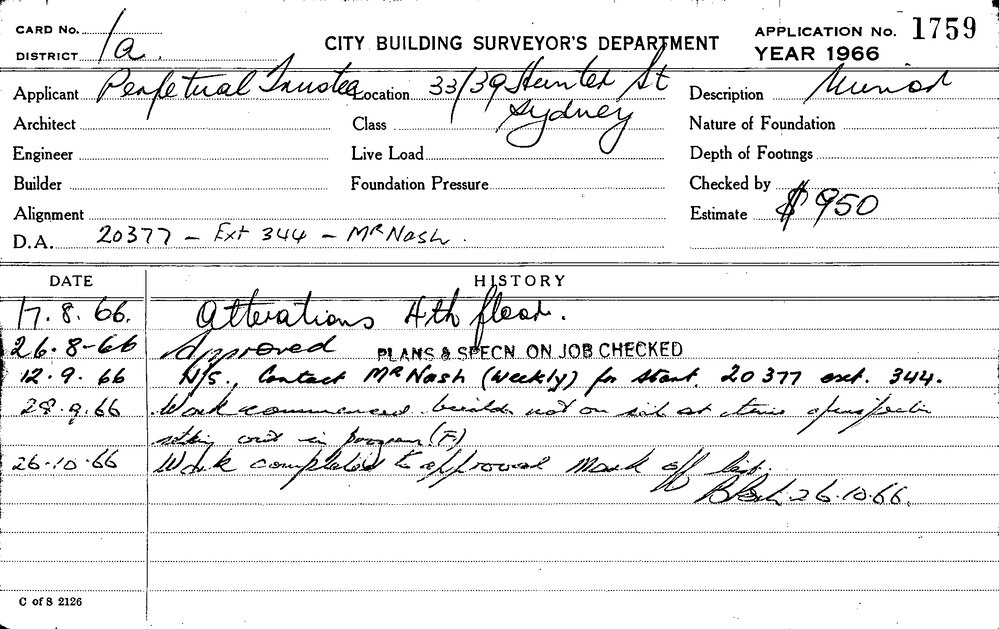 CARD No. 1a
DISTRICT
CITY BUILDING SURVEYOR'S DEPARTMENT
APPLICATION No. 1759
YEAR 1966
Applicant Perpetual Trustee
Location 33/39 Hunter St Sydney
Description Minor
Architect
Class
Nature of Foundation
Engineer
Live Load
Depth of Footings
Builder
Foundation Pressure
Checked by
Alignment
Estimate $950
D.A. 20377 – Ext 344 – Mr Nash.
DATE HISTORY
17.8.66. Alterations 4th floor.
26.8-66 Approved PLANS & SPECN. ON JOB CHECKED
12.9.66 N/S., Contact Mr Nash (weekly) for start. 20377 ext. 344.
28.9.66 Work commenced. not on site at time of inspection
in program (F)
26.10.66 Work completed to approved Mark off list.
26.10.66.
C of S 2126